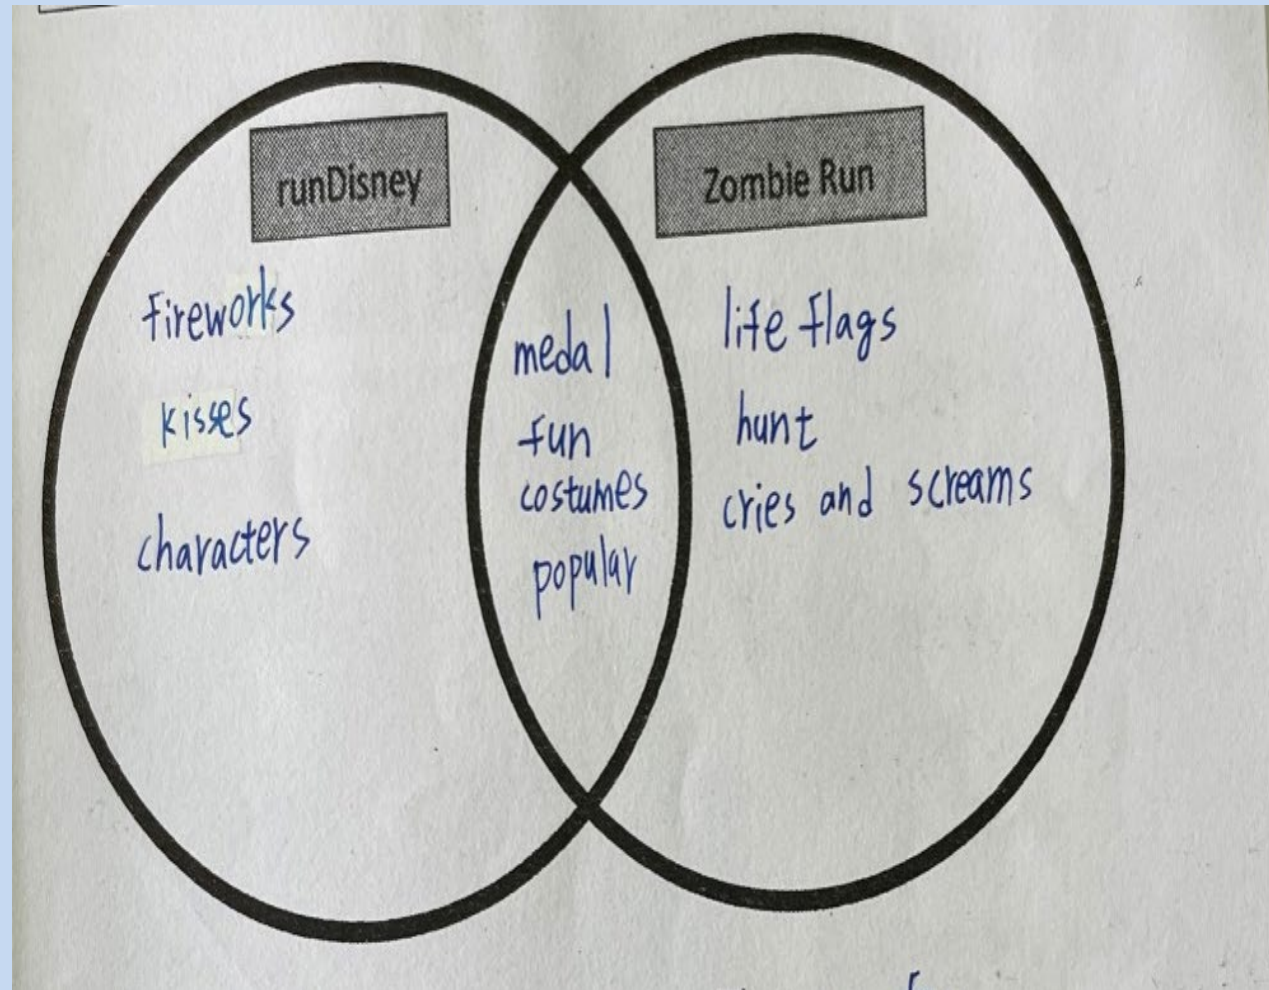 runDisney
fireworks
kisses
characters
medal
fun
costumes
popular
Zombie Run
life flags
hunt
cries and screams